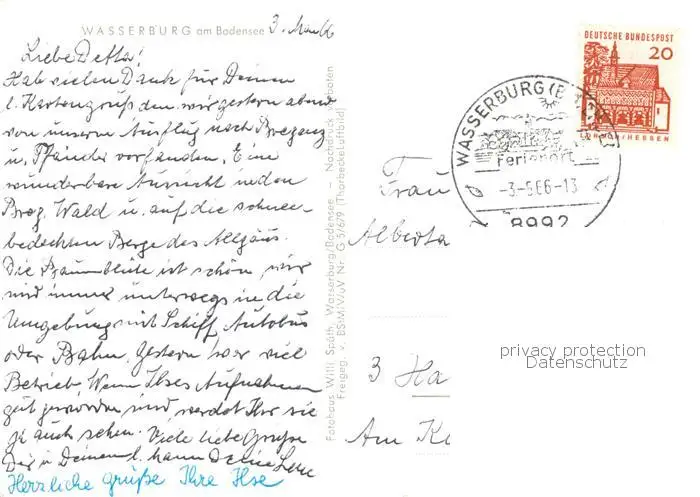 WASSERBURG am Bodensee 3. Mai 66
Liebe Detta!
Hab vielen Dank für Deinen
l. Kartengruß den wir gestern abend
von unserm Ausflug nach Bregenz
u. Pfänder vorfanden. Eine
wunderbare Aussicht in den
Breg. Wald u. auf die schnee-
bedeckten Berge des Allgäus.
Die Baumblüte ist schön, wir
sind immer unterwegs in die
Umgebung mit Schiff, Autobus
oder Bahn. Gestern war viel
Betrieb. Wenn Ilses Aufnahmen
gut geworden sind, werdet Ihr sie
ja auch sehen. Viele liebe Grüße
Dir u. Deinem l. Mann Deine
Herzliche Grüße Ihre Ilse
Fotohaus Willi Späth, Wasserburg/Bodensee — Nachdruck verboten
Freigeg. v. BStMWuV Nr. G 5/679 (Thorbecke Luftbild)
DEUTSCHE BUNDESPOST
20
HESSEN
WASSERBURG (BODENSEE)
Ferienort
-3.-5.66-13
8992
Frau
Alberta
3 Ha
Am K
privacy protection
Datenschutz